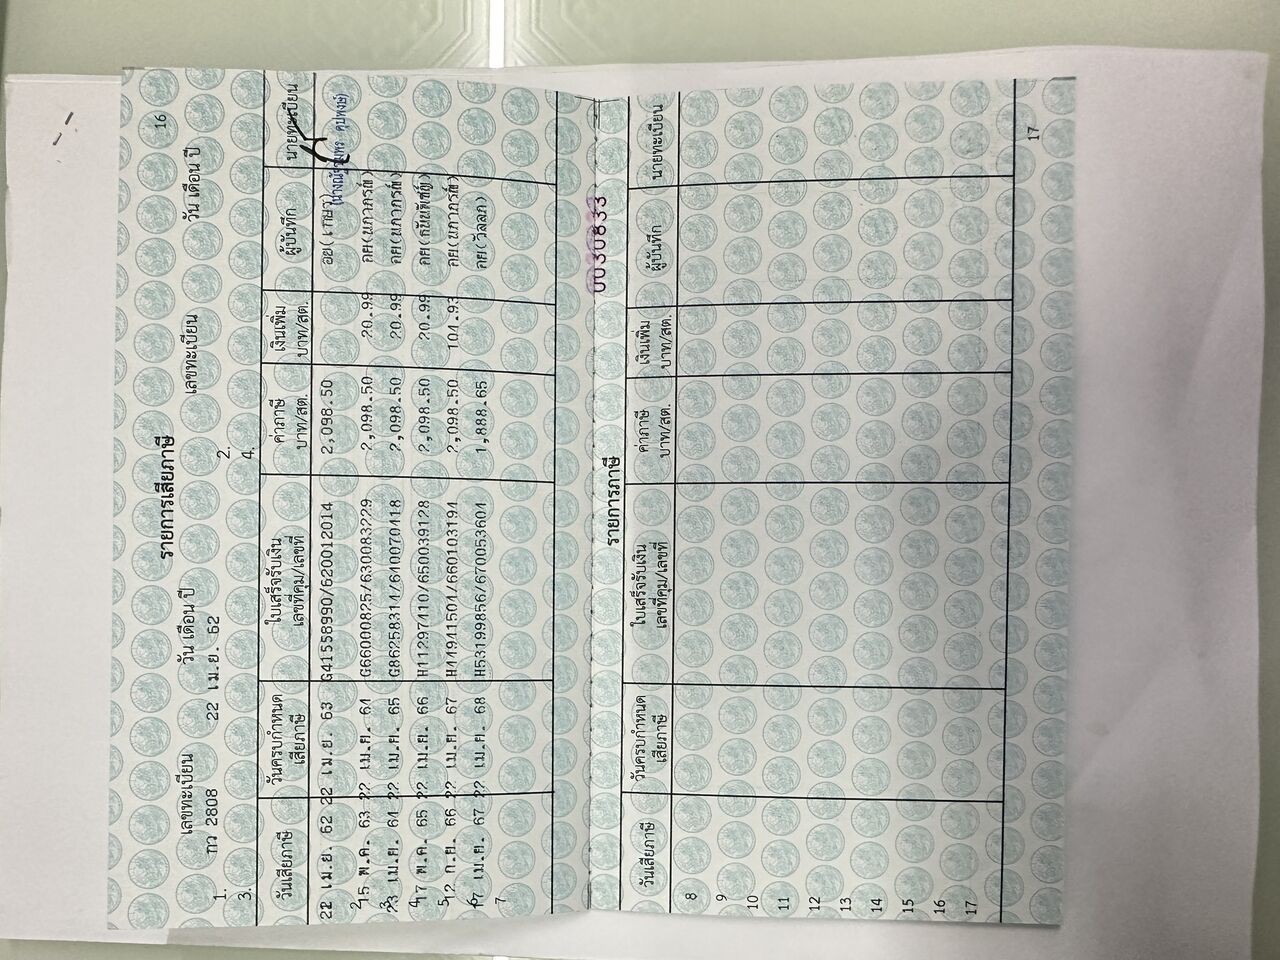 16
รายการเสียภาษี
เลขทะเบียน วัน เดือน ปี เลขทะเบียน วัน เดือน ปี
1. กว 2808 22 เม.ย. 62 2.
3. 4.
วันเสียภาษี วันครบกำหนด เสียภาษี ใบเสร็จรับเงิน เลขที่คุม/เลขที่ ค่าภาษี บาท/สต. เงินเพิ่ม บาท/สต. ผู้บันทึก นายทะเบียน
22 เม.ย. 62 22 เม.ย. 63 G41558990/620012014 2,098.50
2 15 พ.ค. 63 22 เม.ย. 64 G66000825/630083229 2,098.50 20.99 กค(นภาภรณ์)
3 23 เม.ย. 64 22 เม.ย. 65 G86258314/640070418 2,098.50 20.99 กค(นภาภรณ์)
4 17 พ.ค. 65 22 เม.ย. 66 H11297410/650039128 2,098.50 20.99
5 12 ก.ย. 66 22 เม.ย. 67 H44941504/660103194 2,098.50 104.93 กค(นภาภรณ์)
6 17 เม.ย. 67 22 เม.ย. 68 H53199856/670053604 1,888.65 กค(วัลลภ)
7
0030833
รายการภาษี
วันเสียภาษี วันครบกำหนด เสียภาษี ใบเสร็จรับเงิน เลขที่คุม/เลขที่ ค่าภาษี บาท/สต. เงินเพิ่ม บาท/สต. ผู้บันทึก นายทะเบียน
8
9
10
11
12
13
14
15
16
17
17